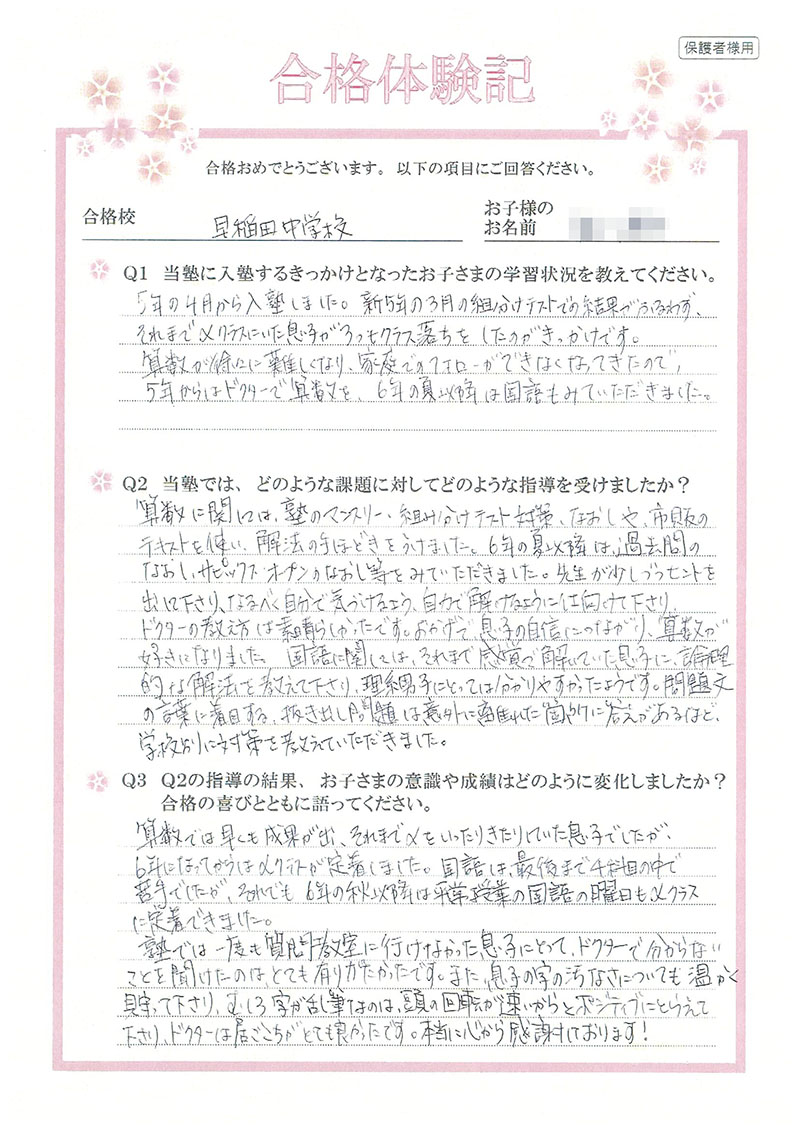 保護者様用
合格体験記
合格おめでとうございます。以下の項目にご回答ください。
合格校 早稲田中学校 お子様のお名前
Q1 当塾に入塾するきっかけとなったお子さまの学習状況を教えてください。
5年の4月から入塾しました。新5年の3月の組分けテストでの結果がふるわず、
それまでαクラスにいた息子が3つもクラス落ちをしたのがきっかけです。
算数が徐々に難しくなり、家庭でのフォローができなくなってきたので、
5年からはドクターで算数を、6年の夏以降は国語もみていただきました。
Q2 当塾では、どのような課題に対してどのような指導を受けましたか?
算数に関しては、塾のマンスリー、組み分けテスト対策、なおしや、市販の
テキストを使い、解法の手ほどきをうけました。6年の夏以降は、過去問の
なおし、サピックス・オープンのなおし等をみていただきました。先生が少しづつヒントを
出して下さり、なるべく自分で気づけるよう、自力で解けるように仕向けて下さり、
ドクターの教え方は素晴らしかったです。おかげで、息子の自信につながり、算数が
好きになりました。国語に関しては、それまで感覚で解いていた息子に、論理
的な解法を教えて下さり、理系男子にとっては分かりやすかったようです。問題文
の言葉に着目する、抜き出し問題は意外に離れた箇所に答えがあるなど、
学校別に対策を教えていただきました。
Q3 Q2の指導の結果、お子さまの意識や成績はどのように変化しましたか?
合格の喜びとともに語ってください。
算数では早くも成果が出、それまでαをいったりきたりしていた息子でしたが、
6年になってからはαクラスが定着しました。国語は、最後まで4科目の中で
苦手でしたが、それでも6年の秋以降は平常授業の国語の曜日もαクラス
に定着できました。
塾では一度も質問教室に行けなかった息子にとって、ドクターで分からない
ことを聞けたのはとても有りがたかったです。また、息子の字の汚なさについても温かく
見守って下さり、むしろ字が乱筆なのは、頭の回転が速いからとポジティブにとらえて
下さり、ドクターは居ごこちがとても良かったです。本当に心から感謝しております!